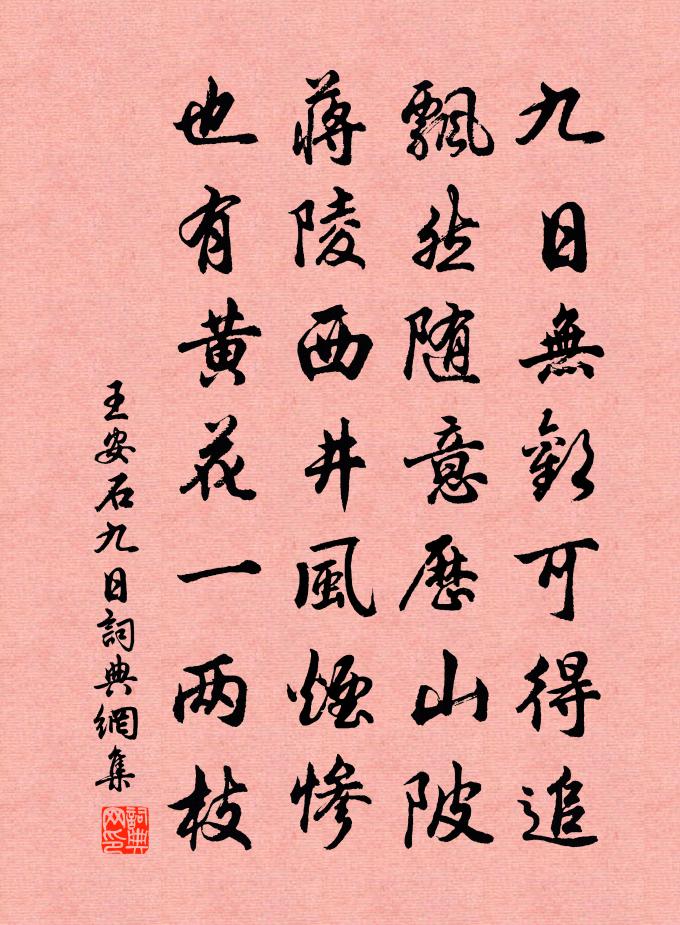 九日無歡可得追
飄然随意歷山陂
蔣陵西井風煙慘
也有黄花一两枝
王安石九日詞典網集
詞典网印